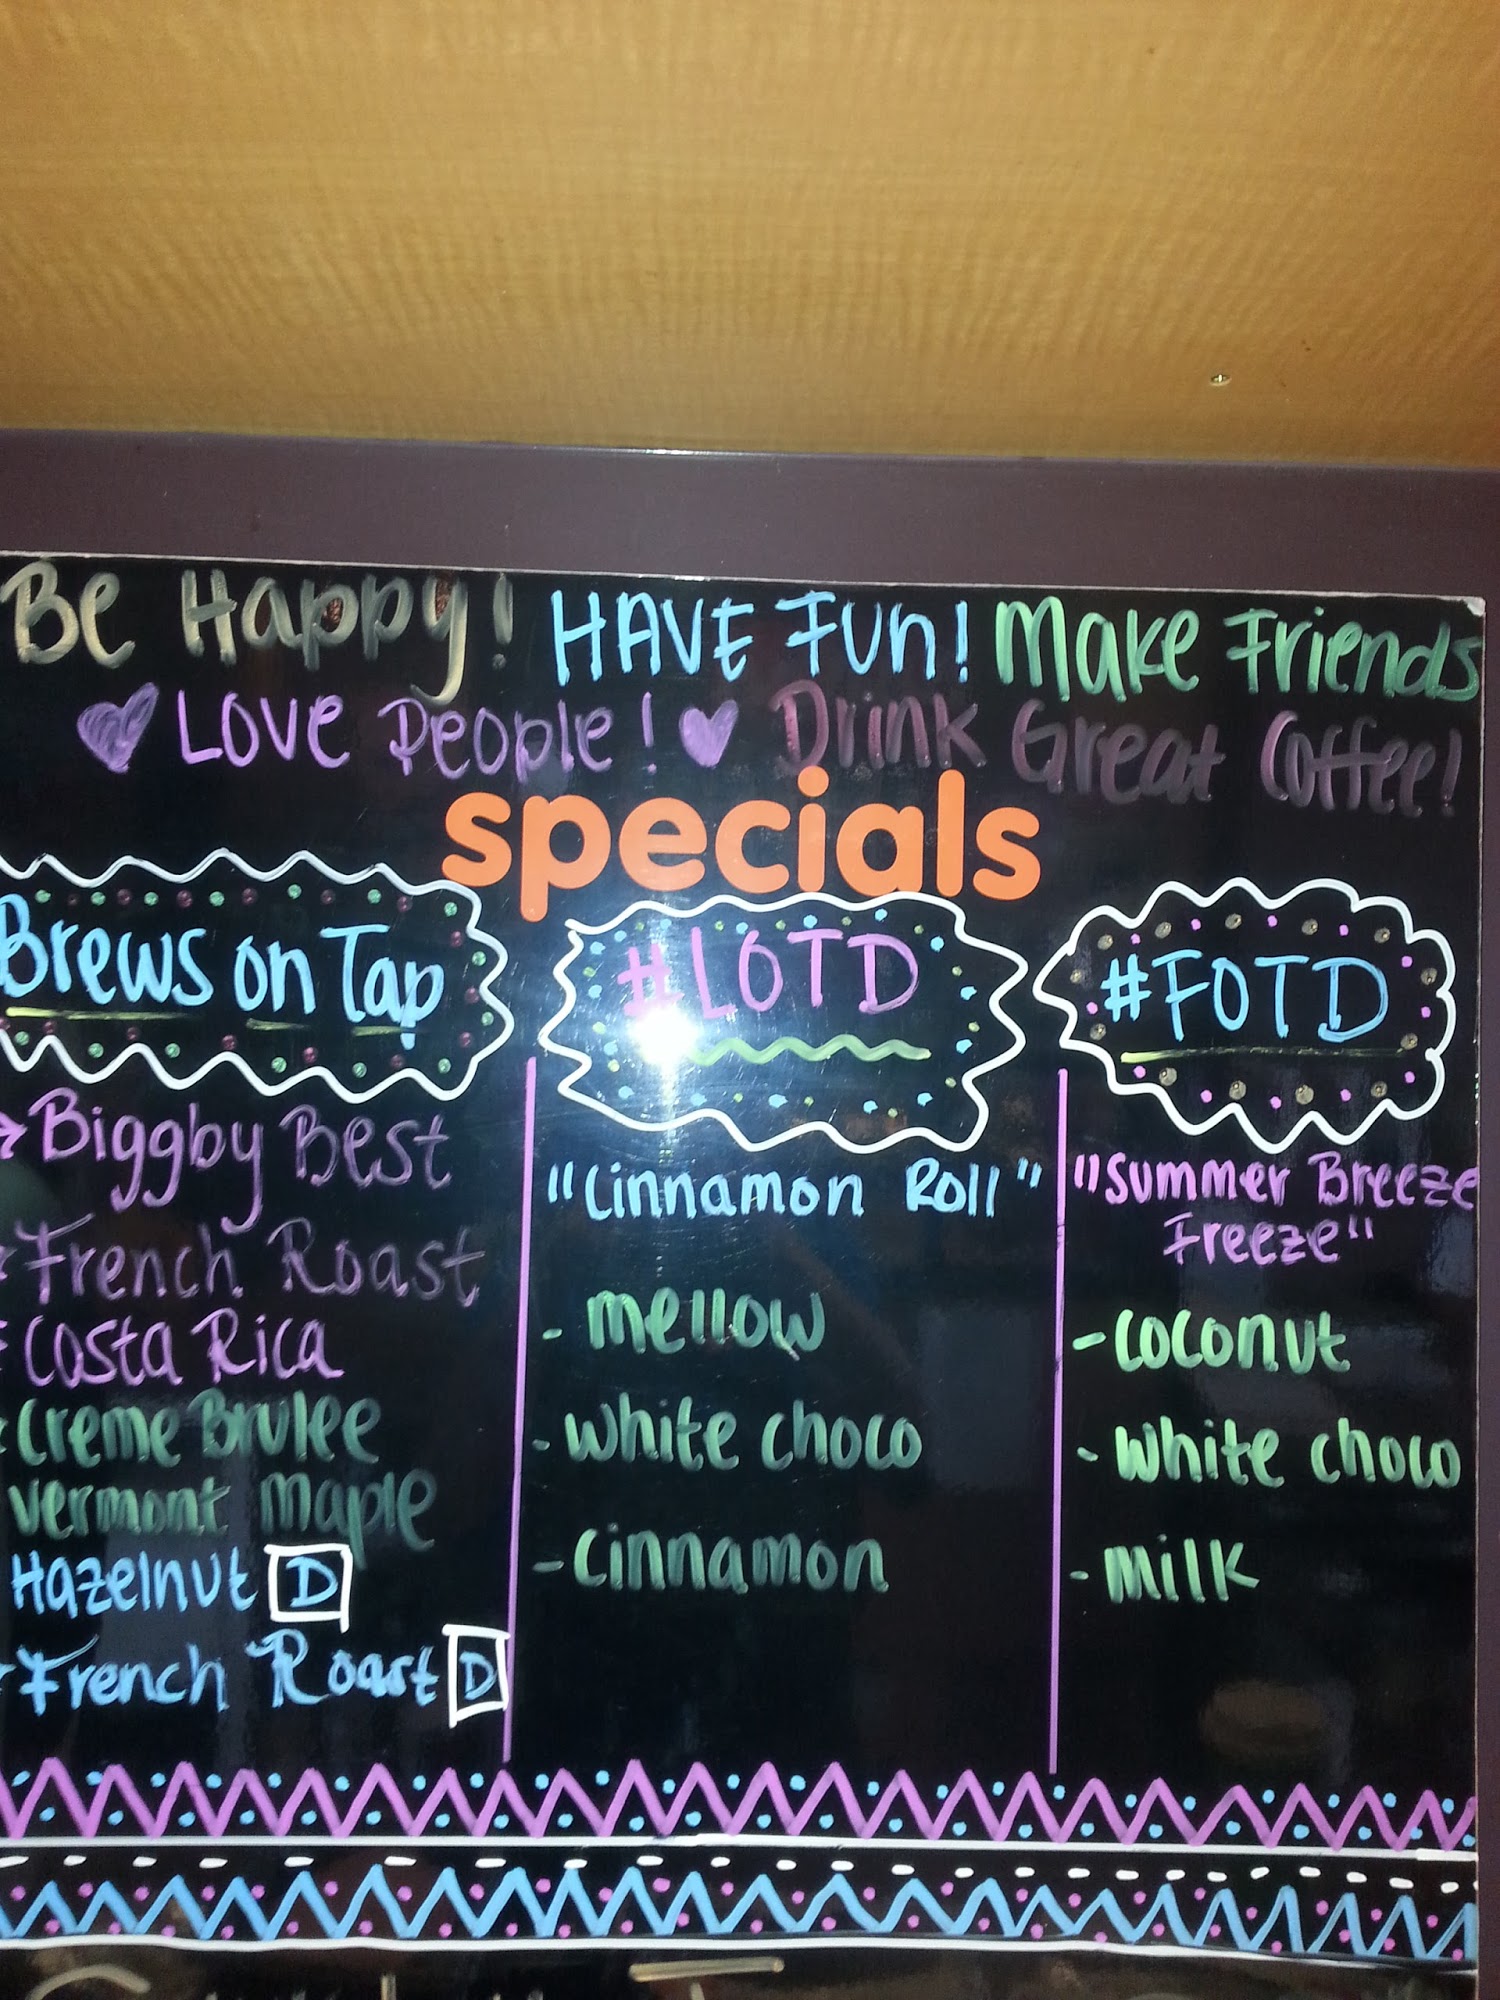 Be Happy! HAVE FUN! Make Friends
Love People! Drink Great Coffee!
specials
Brews on Tap
Biggby Best
French Roast
Costa Rica
Creme Brulee
Vermont Maple
Hazelnut D
French Roast D
#LOTD
"Cinnamon Roll"
- mellow
- white choco
- cinnamon
#FOTD
"Summer Breeze
Freeze"
- coconut
- white choco
- milk